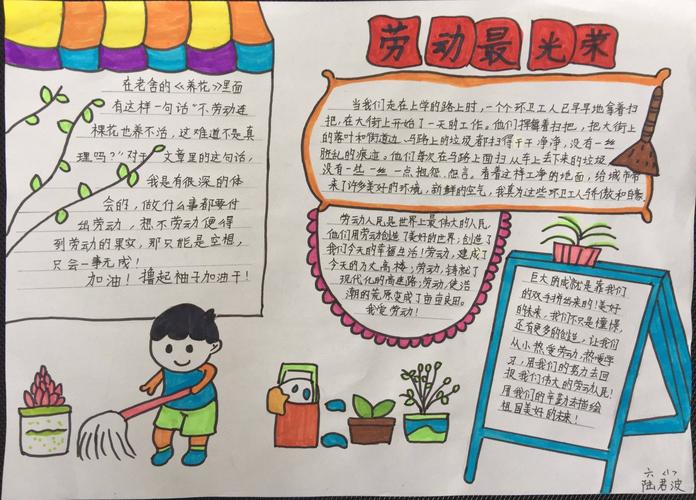 劳动最光荣
在老舍的《养花》里面
有这样一句话“不劳动连
棵花也养不活，这难道不是真
理吗？”对于 文章里的这句话，
我是有很深的体
会的，做什么事都要付
出劳动，想不劳动便得
到劳动的果实，那只能是空想，
只会一事无成！
加油！撸起袖子加油干！
当我们走在上学的路上时，一个个环卫工人已早早地拿着扫
把，在大街上开始了一天的工作。他们挥舞着扫把，把大街上
的落叶和街道边、马路上的垃圾都扫得干干净净，没有一丝
脏乱的痕迹。他们每次在马路上面扫从车上丢下来的垃圾
没有一丝一丝一点抱怨，怨言，看着这样干净的地面，给城市带
来了许多美好的环境，新鲜的空气，我真为这些环卫工人骄傲和自豪
劳动人民是世界上最伟大的人民，
他们用劳动创造了美好的世界；创造了
我们今天的幸福生活！劳动，建成了
今天的万丈高楼；劳动，铸就了
现代化的高速路；劳动，使浩
瀚的荒原变成了亩亩良田。
我爱劳动！
巨大的成就是靠我们
的双手拼出来的！美好
的未来，我们不只是憧憬，
还有更多的创造，让我们
从小热爱劳动，热爱学
习，用我们的努力去回
报我们伟大的劳动人民！
用我们的辛勤去描绘
祖国美好的未来！
六（1）
陆君波